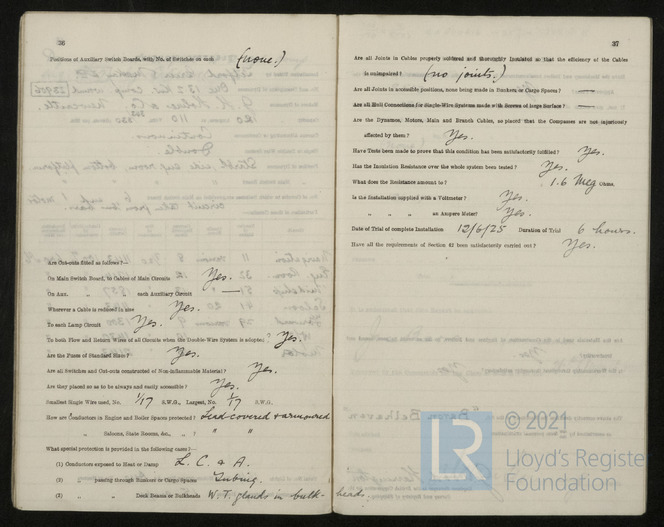 36
Positions of Auxiliary Switch Boards, with No. of Switches on each (none.)
Are Cut-outs fitted as follows?—
On Main Switch Board, to Cables of Main Circuits Yes.
On Aux. " " each Auxiliary Circuit —
Wherever a Cable is reduced in size Yes.
To each Lamp Circuit Yes.
To both Flow and Return Wires of all Circuits when the Double-Wire System is adopted? Yes.
Are the Fuses of Standard Sizes? Yes.
Are all Switches and Cut-outs constructed of Non-inflammable Material? Yes.
Are they placed so as to be always and easily accessible? Yes.
Smallest Single Wire used, No. 1/17 S.W.G., Largest, No. S.W.G.
How are Conductors in Engine and Boiler Spaces protected? Lead-covered & armoured
" Saloons, State Rooms, &c., " ? " "
What special protection is provided in the following cases?—
(1) Conductors exposed to Heat or Damp L. C. & A.
(2) " passing through Bunkers or Cargo Spaces Tubing.
(3) " " Deck Beams or Bulkheads W.T. glands in bulk-heads.
37
Are all Joints in Cables properly soldered and thoroughly insulated so that the efficiency of the Cables
is unimpaired? (no joints.)
Are all Joints in accessible positions, none being made in Bunkers or Cargo Spaces? —
Are all Hull Connections for Single-Wire Systems made with Screws of large Surface? —
Are the Dynamos, Motors, Main and Branch Cables, so placed that the Compasses are not injuriously
affected by them? Yes.
Have Tests been made to prove that this condition has been satisfactorily fulfilled? Yes.
Has the Insulation Resistance over the whole system been tested? Yes.
What does the Resistance amount to? 1.6 Meg Ohms.
Is the Installation supplied with a Voltmeter? Yes.
" " " an Ampere Meter? Yes.
Date of Trial of complete Installation 12/6/25 Duration of Trial 6 hours.
Have all the requirements of Section 42 been satisfactorily carried out? Yes.
© 2021
LR
Lloyd's Register
Foundation